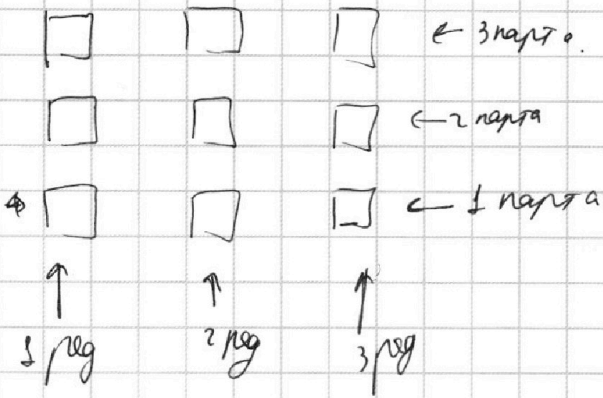 ← 3 парта.
← 2 парта
← 1 парта
1 ряд
2 ряд
3 ряд